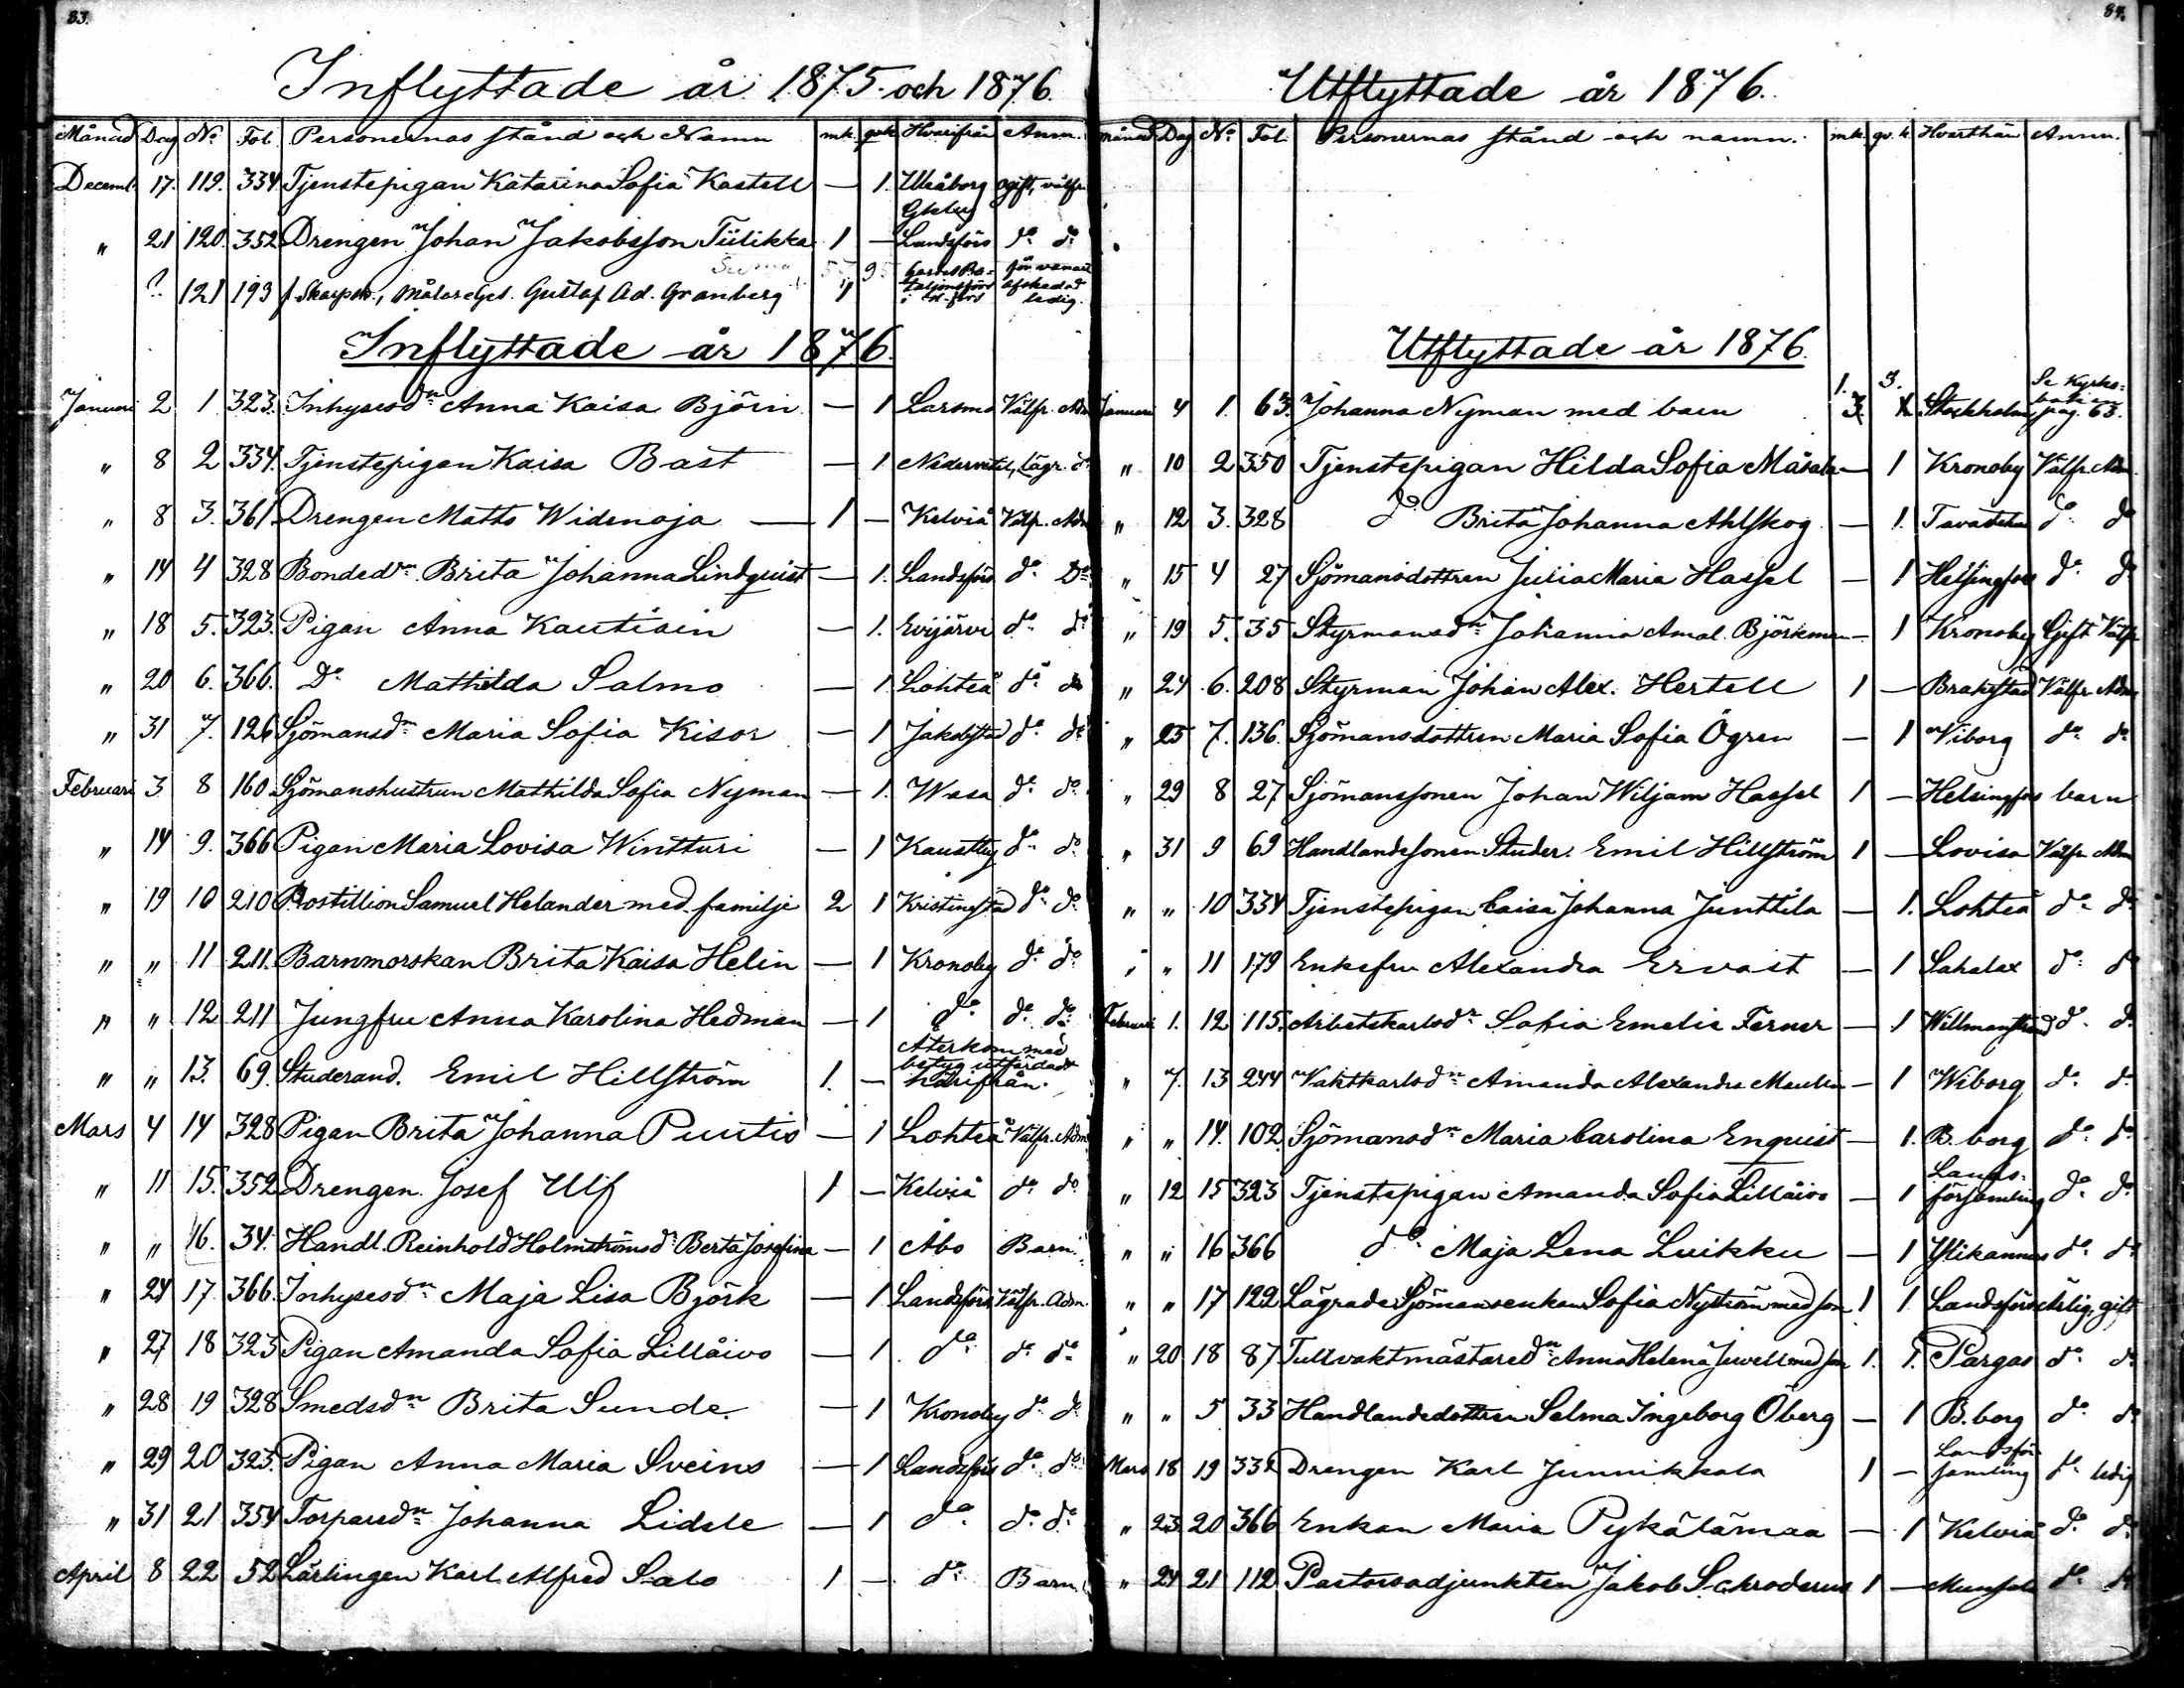 83.
Inflyttade år 1875 och 1876.
Månad Dag No. Fol. Personernas stånd och Namn mk. qvk Hvarifrån Anm.
Decemb. 17. 119. 334 Tjenstepigan Katarina Sofia Kastell — 1. Uleåborg ogift, välfr.
" 21 120. 352 Drengen Johan Jakobsson Tiilikka 1 — Gkleby Landsförs do do
Summa 57 95
? 121 193 f. Skarpsk., Målareges. Gustaf Ad. Granberg 1 Gardes Ba-taljonsförs i H.fors för vanart afskedad ledig.
Inflyttade år 1876.
Januari 2 1 323. Inhysesdn Anna Kaisa Björn — 1 Larsmo Välfr. Adm
" 8 2 334. Tjenstepigan Kaisa Bast — 1 Nedervetil, lägr. do
" 8 3. 361. Drengen Matts Widenoja — 1 — Kelviå Välfr. Adm
" 14 4 328 Bondedn Brita Johanna Lindquist — 1. Landsförs do Do
" 18 5. 323. Pigan Anna Kautiain — 1. Evijärvi do do
" 20 6. 366. Do Mathilda Salmo — 1 Lohteå do do
" 31 7. 126 Sjömansdn Maria Sofia Kisor — 1 Jakobstad do do
Februari 3 8 160 Sjömanshustrun Mathilda Sofia Nyman — 1. Wasa do do
" 14 9. 366 Pigan Maria Lovisa Wintturi — 1 Kaustby do do
" 19 10 210 Postillion Samuel Helander med familje 2 1 Kristinestad do do
" " 11 211. Barnmorskan Brita Kaisa Helin — 1 Kronoby do do
" " 12 211 Jungfru Anna Karolina Hedman — 1 do do do
" " 13. 69. Studerand. Emil Hillström 1. — Återkom med betyg utfärdadt härifrån.
Mars 4 14 328 Pigan Brita Johanna Puutio — 1 Lohteå Välfr. Adm
" 11 15. 352 Drengen Josef Ulf 1 — Kelviå do do
" " 16. 34. Handl. Reinhold Holmströms dr Berta Josefina — 1 Åbo Barn.
" 24 17 366. Inhysesdn Maja Lisa Björk — 1 Landsförs. Välfr. Adm.
" 27 18 323 Pigan Amanda Sofia Lillåivo — 1 do do do
" 28 19 328 Smedsdn Brita Sunde. — 1 Kronoby do do
" 29 20 323. Pigan Anna Maria Sveins — 1 Landsförs do do
" 31 21 354 Torparedn Johanna Lidsle — 1 do do do
April 8 22 52 Lärlingen Karl Alfred Salo 1 — do Barn.
84.
Utflyttade år 1876.
Månad Dag No. Fol. Personernas stånd och namn. mk. qv. k. Hvarthän Anm.
Utflyttade år 1876.
Januari 4 1. 63. Johanna Nyman med barn 1. 3. 3. Stockholm Se Kyrko-boken pag. 63.
" 10 2 350 Tjenstepigan Hilda Sofia Måsala — 1 Kronoby Välfr. Adm
" 12 3. 328 do Brita Johanna Ahlskog — 1. Tavastehus do do
" 15 4 27 Sjömansdottren Julia Maria Hassel — 1 Helsingfors do do
" 19 5. 35 Styrmansdn Johanna Amal. Björkman — 1 Kronoby Gift Välfr
" 24 6. 208 Styrman Johan Alex. Hertell 1 — Brahestad Välfr. Adm
" 25 7. 136. Sjömansdottren Maria Sofia Ögren — 1 Viborg do do
" 29 8 27 Sjömanssonen Johan Wiljam Hassel 1 — Helsingfors barn
" 31 9 69 Handlandesonen Studer. Emil Hillström 1 — Lovisa Välfr. Adm
" " 10 334 Tjenstepigan Caisa Johanna Junttila — 1. Lohteå do do
" " 11 179 Enkefru Alexandra Ervast — 1 Sahalax do do
Februari 1. 12 115. Arbetskarlsdn Sofia Emelie Ferner — 1 Willmanstrand do do
" 7. 13 244 Vaktkarlsdn Amanda Alexandra — 1 Wiborg do do
" " 14. 102. Sjömansdn Maria Carolina Enquist — 1. B. borg do do
" 12 15 323 Tjenstepigan Amanda Sofia Lillåivo — 1 Lands-församling do do
" " 16 366 do Maja Lena Luikku — 1 Ylikannus do do
" " 17 122 Lägrade Sjömansenkan Sofia Nyström med son 1 1 Landsförs ärlig, gift
" 20 18 87 Tullvaktmästaredn Anna Helena Juvell med son 1. 1. Pargas do do
" " 5 33 Handlandedottren Selma Ingeborg Öberg — 1 B. borg do do
Mars 18 19 332 Drengen Karl Junnikkala 1 — Landsför-samling do ledig
" 23 20 366 Enkan Maria Pykälämaa — 1 Kelviå do do
" 24 21 112 Pastorsadjunkten Jakob Schroderus 1 — Munsala do do